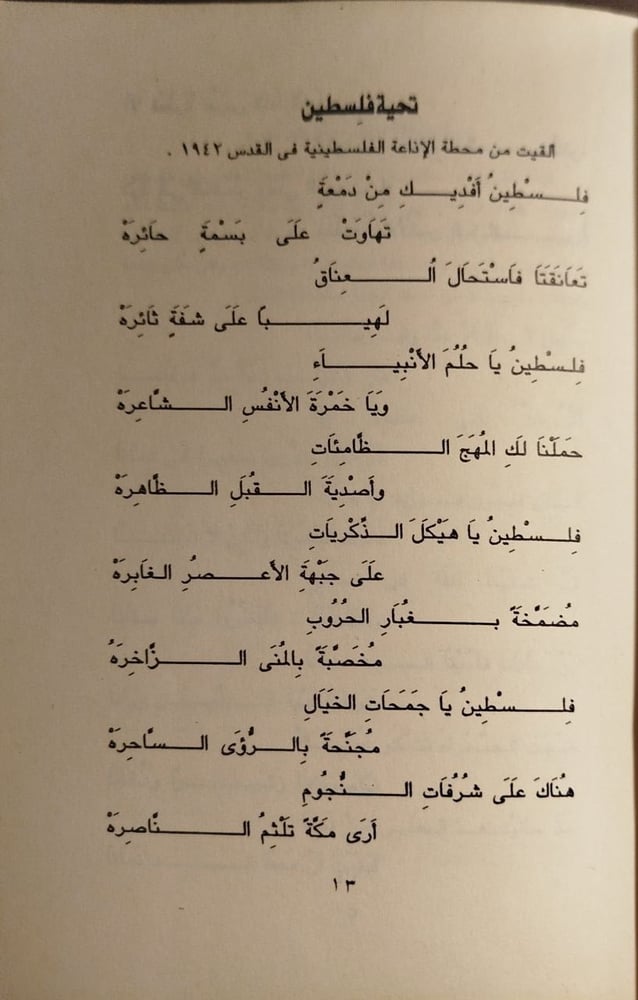 تحية فلسطين
القيت من محطة الإذاعة الفلسطينية في القدس ١٩٤٢ .
فِلـسْطِينُ أَفْدِيـكِ مِنْ دَمْعَةٍ
تَهَاوَتْ عَلَى بَسْمَةٍ حَائِرَهْ
تَعَانَقَتَا فَاسْتَحَالَ اُلـعِنَاقُ
لَهِيـبـاً عَلَى شفَةٍ ثَائِرَهْ
فِلـسْطِينُ يَا حُلُمَ الأَنْبِيـاَءِ
وَيَا خَمْرَةَ الأَنْفُسِ الـشَّاعِرَهْ
حَمَلْنَا لَكِ المُهَجَ الـظَّامِئَاتِ
وأَصْدِيَةَ الـقُبَلِ الـظَّاهِرَهْ
فِلـسْطِينُ يَا هَيْكَلَ الـذِّكْرِيَاتِ
عَلَى جَبْهَةِ الأَعـصُرِ الـغَابِرَهْ
مُضَمَّخَةً بـغُبَارِ الحُرُوبِ
مُخَصَّبَةً بِالمُنَى الـزَّاخِرَهُ
فِلـسْطِينُ يَا جَمَحَاتِ الخَيَالِ
مُجَنَّحةً بِالـرُّؤَى الـسَّاحِرَهْ
هُنَاكَ عَلَى شُرُفَاتِ الـنُّجُومِ
أَرَى مكَّةً تَلْثِمُ الـنَّاصِرَهْ
١٣